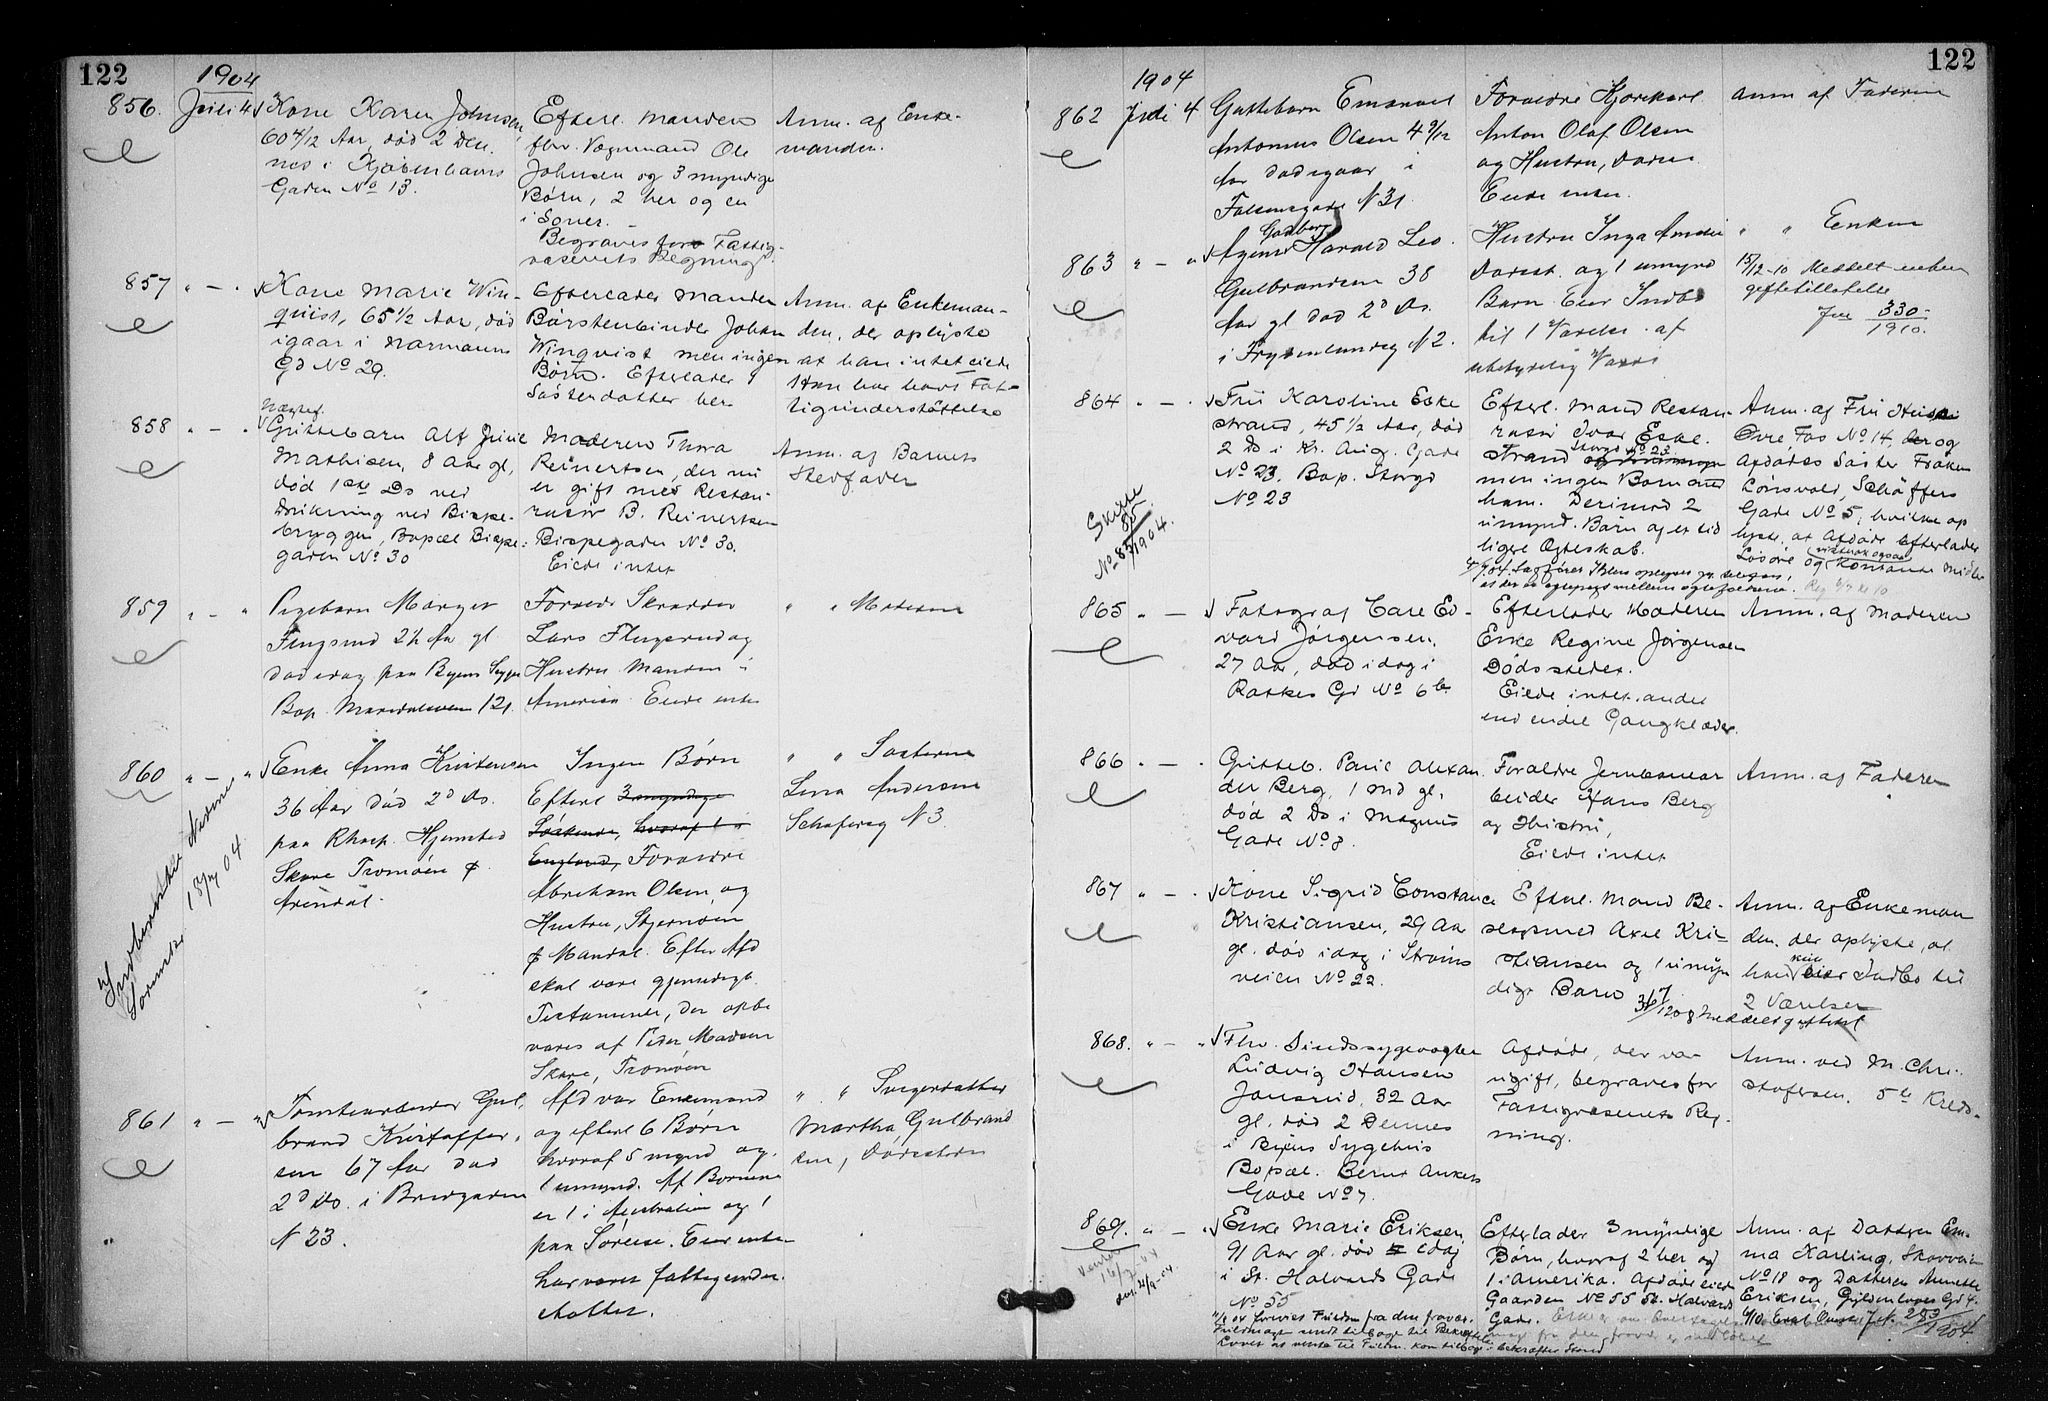 122
1904
856. Juli 4
Kone Karen Johnsen,
60 4/12 Aar, død 2 Den-
nes i Kjøbenhavns
Gaden No 13.
Efterl. Manden
fhv. Vognmand Ole
Johnsen og 3 myndige
Børn, 2 her og en
i Soner.
Begraves for Fattig-
væsenets Regning.
Anm. af Enke-
manden.
857 " — "
Kone Marie Win-
quist, 65 1/2 Aar, død
igaar i Normanns
Gd No 29.
Efterlader Manden
Børstenbinder Johan
Winqvist men ingen
Børn. Efterlader 1
Søsterdatter her
Anm. af Enkeman-
den, der oplyste
at han intet eiede
Han har havt Fat-
tigunderstøttelse
858 " — "
Nægtef.
Guttebarn Alf Juul
Mathisen, 8 Aar gl,
død 1ste Ds ved
Drukning ved Bispe-
bryggen, Bopæl Bispe-
gaden No 30
Moderen Thora
Reinertsen, der nu
er gift med Restau-
ratør B. Reinertsen
Bispegaden No 30.
Eiede intet
Anm. af Barnets
Stedfader
859 " — "
Pigebarn Margit
Flugsrud 2 1/2 Aar gl
død idag paa Byens Syge
Bop. Maridalsveien 121.
Forældre Skrædder
Lars Flugsrud og
Hustru. Manden i
Amerika. Eiede intet
" " Moderen
860 " — "
Enke Anna Kristensen
36 Aar død 2d Ds.
paa Rhosp. Hjemsted
Skare Tromøen p
Arendal.
Ingen Børn
Efterl 3 myndige
Søskende, hvoraf 1 i
England, Forældre
Abraham Olsen og
Hustru, Stjernøen
p Mandal. Efter Afd
skal være gjensidigt
Testamente, der opbe
vares af Peder Madsen
Skare, Tromøen
" " Søsteren
Lina Andersen
Schafersg N 3.
Indberettet Nedenes
Sorenskr. 18/7 04.
861 " — "
Tomtearbeider Gul-
brand Kristoffer-
sen 67 Aar død
2d Ds. i Bredgaden
N 23.
Afd var Enkemand
og efterl 6 Børn
hvoraf 5 mynd og
1 umynd. Af Børnene
er 1 i Australien og 1
paa Søreise. Eier intet
har været fattigunder-
støttet.
" " Svigerdatter
Martha Gulbrand
sen, Dødsstedet
122
1904
862 Juli 4
Guttebarn Emanuel
Antonius Olsen 4 9/12
Aar død igaar i
Falsensgade N 31
Forældre Hjørkarl
Anton Olaf Olsen
og Hustru, Døds
Eiede intet.
Anm af Faderen
863 " — "
Agent Harald Leo
Gulbrandsen 38
Aar gl død 2d Ds.
i Frydenlundsg N 2.
Hustru Inga Amalie
Dødsst. og 1 umynd
Barn Eier Indbo
til 1 Værelse af
ubetydelig Værdi
" " Enken
15/12-10 Meddelt enken
giftetilladelse
Jnr 330
1910.
864 " — "
Fru Karoline Eske
strand, 45 1/2 Aar, død
2 Ds i Kr. Aug. Gade
No 23. Bop. Storgd
No 23
Skifte
No 85/1904.
Efterl. Mand Restau-
ratør Ivar Eske-
strand Storgd No 23
men ingen Børn med
ham. Derimod 2
umynd. Børn af et tid
ligere Ægteskab.
Anm. af Fru
Øvre Fos No 14, og
Afdødes Søster Frøken
Lønsvold, Schøffers
Gade No 5, hvilke op
lyste, at Afdøde efterlader
Løsøre og kontante Midler
865 " — "
Fotograf Carl Ed-
vard Jørgensen,
27 Aar, død idag i
Raskes Gd No 6 b
Efterlader Moderen
Enke Regine Jørgensen
Dødsstedet.
Eiede intet andet
end endel Gangklæder
Anm. af Moderen
866 " — "
Gutteb. Poul Alexan
der Berg, 1 Md gl,
død 2 Ds i Magnus
Gade No 8.
Forældre Jernbanear
beider Hans Berg
og Hustru,
Eiede intet
Anm. af Faderen
867 " — "
Kone Sigrid Constance
Kristiansen, 29 Aar
gl. død idag i Strøms
veien No 22.
Efterl. Mand Be-
slagsmed Axel Kri-
stiansen og 1 umyn
digt Barn
Anm. af Enkeman
den, der oplyste, at
han kun eier Indbo til
2 Værelser
868. " — "
Fhv. Sindssygevogter
Ludvig Hansen
Jonsrud, 32 Aar
gl. død 2 Dennes
i Byens Sygehus
Bopæl. Bernt Ankers
Gade No 7.
Afdøde, der var
ugift, begraves for
Fattigvæsenets Reg-
ning.
Anm. ved M. Chri-
stofersen. 5te Kreds.
869. " — "
Enke Marie Eriksen,
91 Aar gl. død idag
i St. Halvards Gade
No 55
Efterlader 3 myndige
Børn, hvoraf 2 her og
1 i Amerika. Afdøde eiede
Gaarden No 55 St. Halvards
Gade.
Anm. af Datteren Em-
ma Karling, Skovveien
No 18 og Datteren Annette
Eriksen, Gyldenløves Gd 4.
283/1904